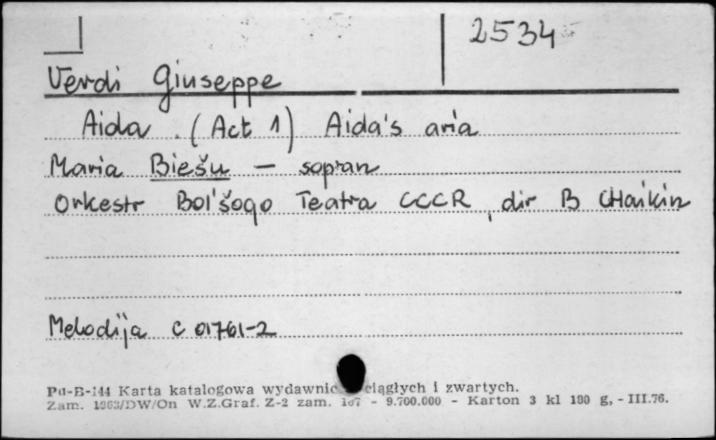 2534
Verdi Giuseppe
Aida (Act 1) Aida's aria
Maria Biešu – sopran
Orkestr Bol'šogo Teatra CCCR, dir B CHaikin
Melodija C 01761-2
Pu-B-144 Karta katalogowa wydawnic ciągłych i zwartych.
Zam. 1963/DW/On W.Z.Graf. Z-2 zam. - 9.700.000 - Karton 3 kl 180 g, - III.76.